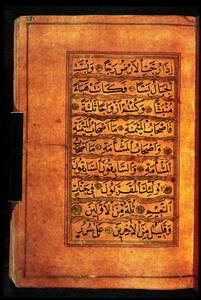 إِذَا رُجَّتِ الْأَرْضُ رَجًّا وَبُسَّتِ
الْجِبَالُ بَسًّا فَكَانَتْ هَبَاءً
مُنْبَثًّا وَكُنْتُمْ أَزْوَاجًا ثَلَاثَةً
فَأَصْحَابُ الْمَيْمَنَةِ مَا أَصْحَابُ الْمَيْمَنَةِ
وَأَصْحَابُ الْمَشْأَمَةِ مَا أَصْحَابُ
الْمَشْأَمَةِ وَالسَّابِقُونَ السَّابِقُونَ
أُولَئِكَ الْمُقَرَّبُونَ فِي جَنَّاتِ
النَّعِيمِ ثُلَّةٌ مِنَ الْأَوَّلِينَ
وَقَلِيلٌ مِنَ الْآخِرِينَ عَلَى سُرُرٍ